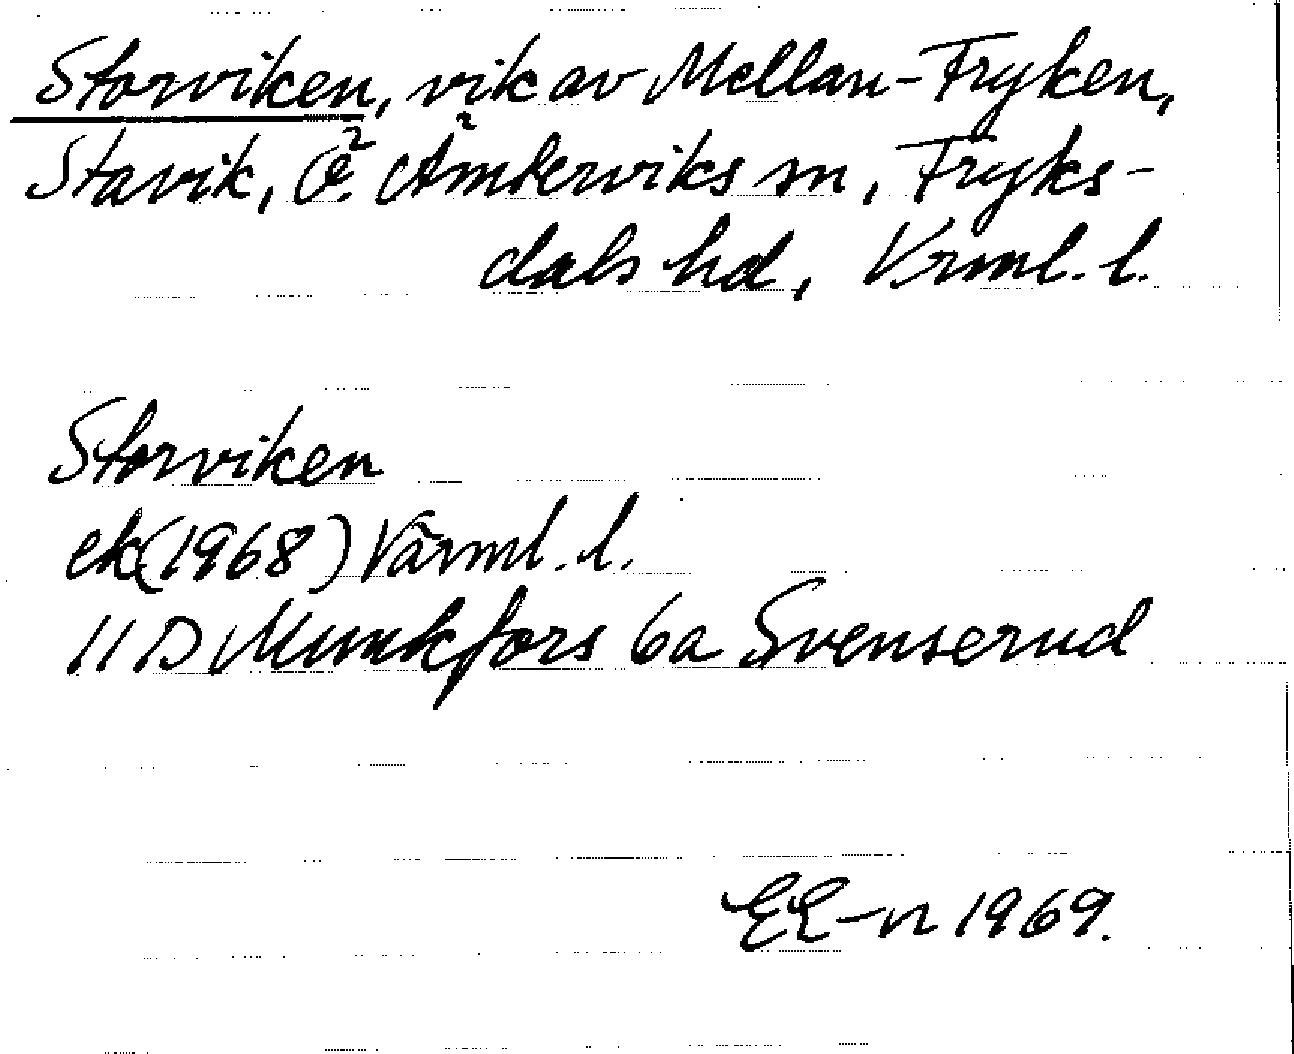 Storviken, vik av Mellan-Fryken,
Stavik, Ö. Ämterviks sn, Fryks-
dals hd, Vrml. l.
Storviken
ek (1968) Värml. l.
11 D Munkfors 6a Svenserud
EE-n 1969.